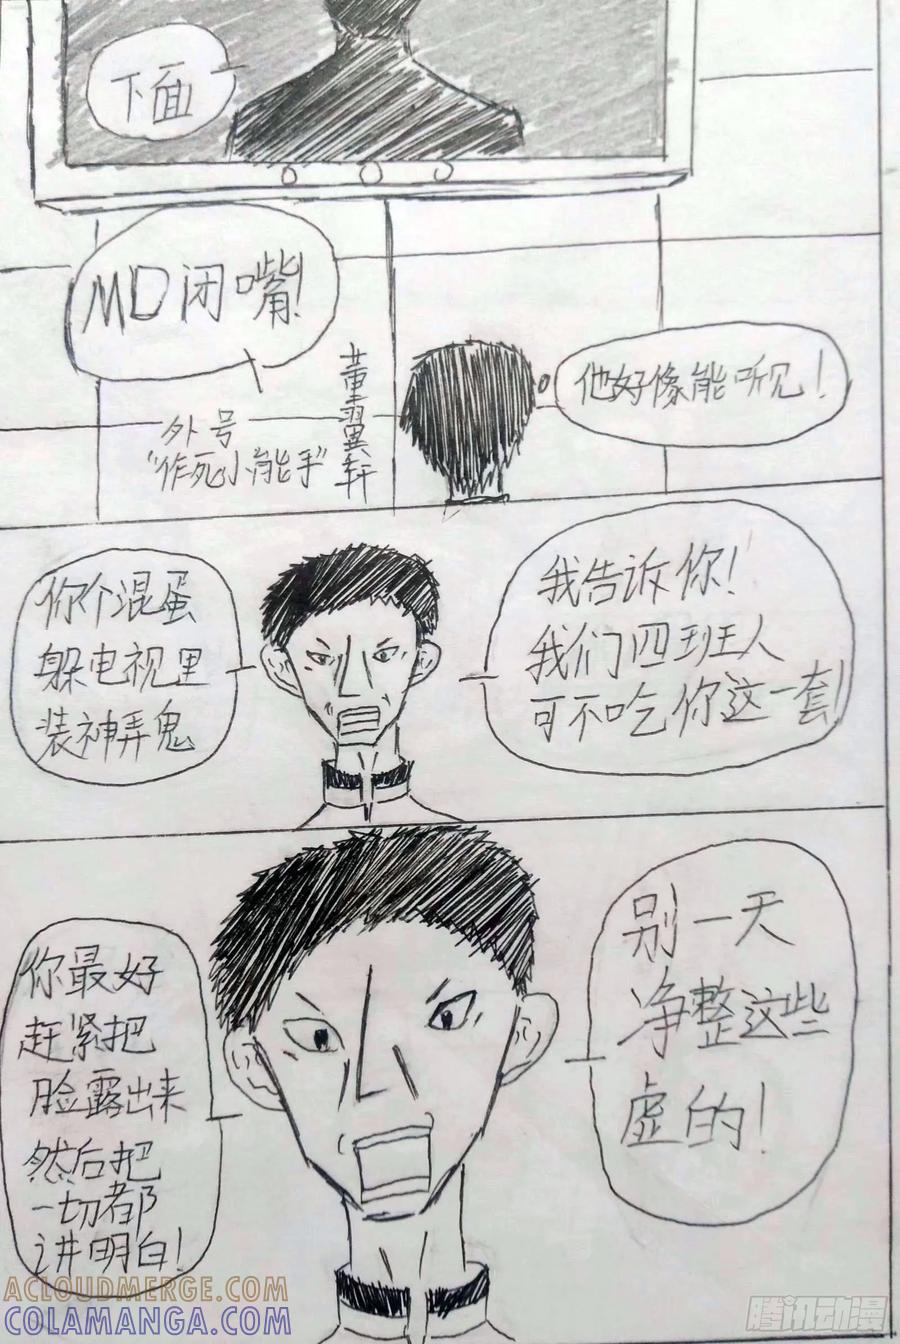 下面
MD闭嘴!
他好像能听见!
外号
"作死小能手"
董羽翼轩
你个混蛋
躲电视里
装神弄鬼
我告诉你!
我们四班人
可不吃你这一套!
别一天
净整这些
虚的!
你最好
赶紧把
脸露出来
然后把
一切都
讲明白!
ACLOUDMERGE.COM
COLAMANGA.COM
腾讯动漫